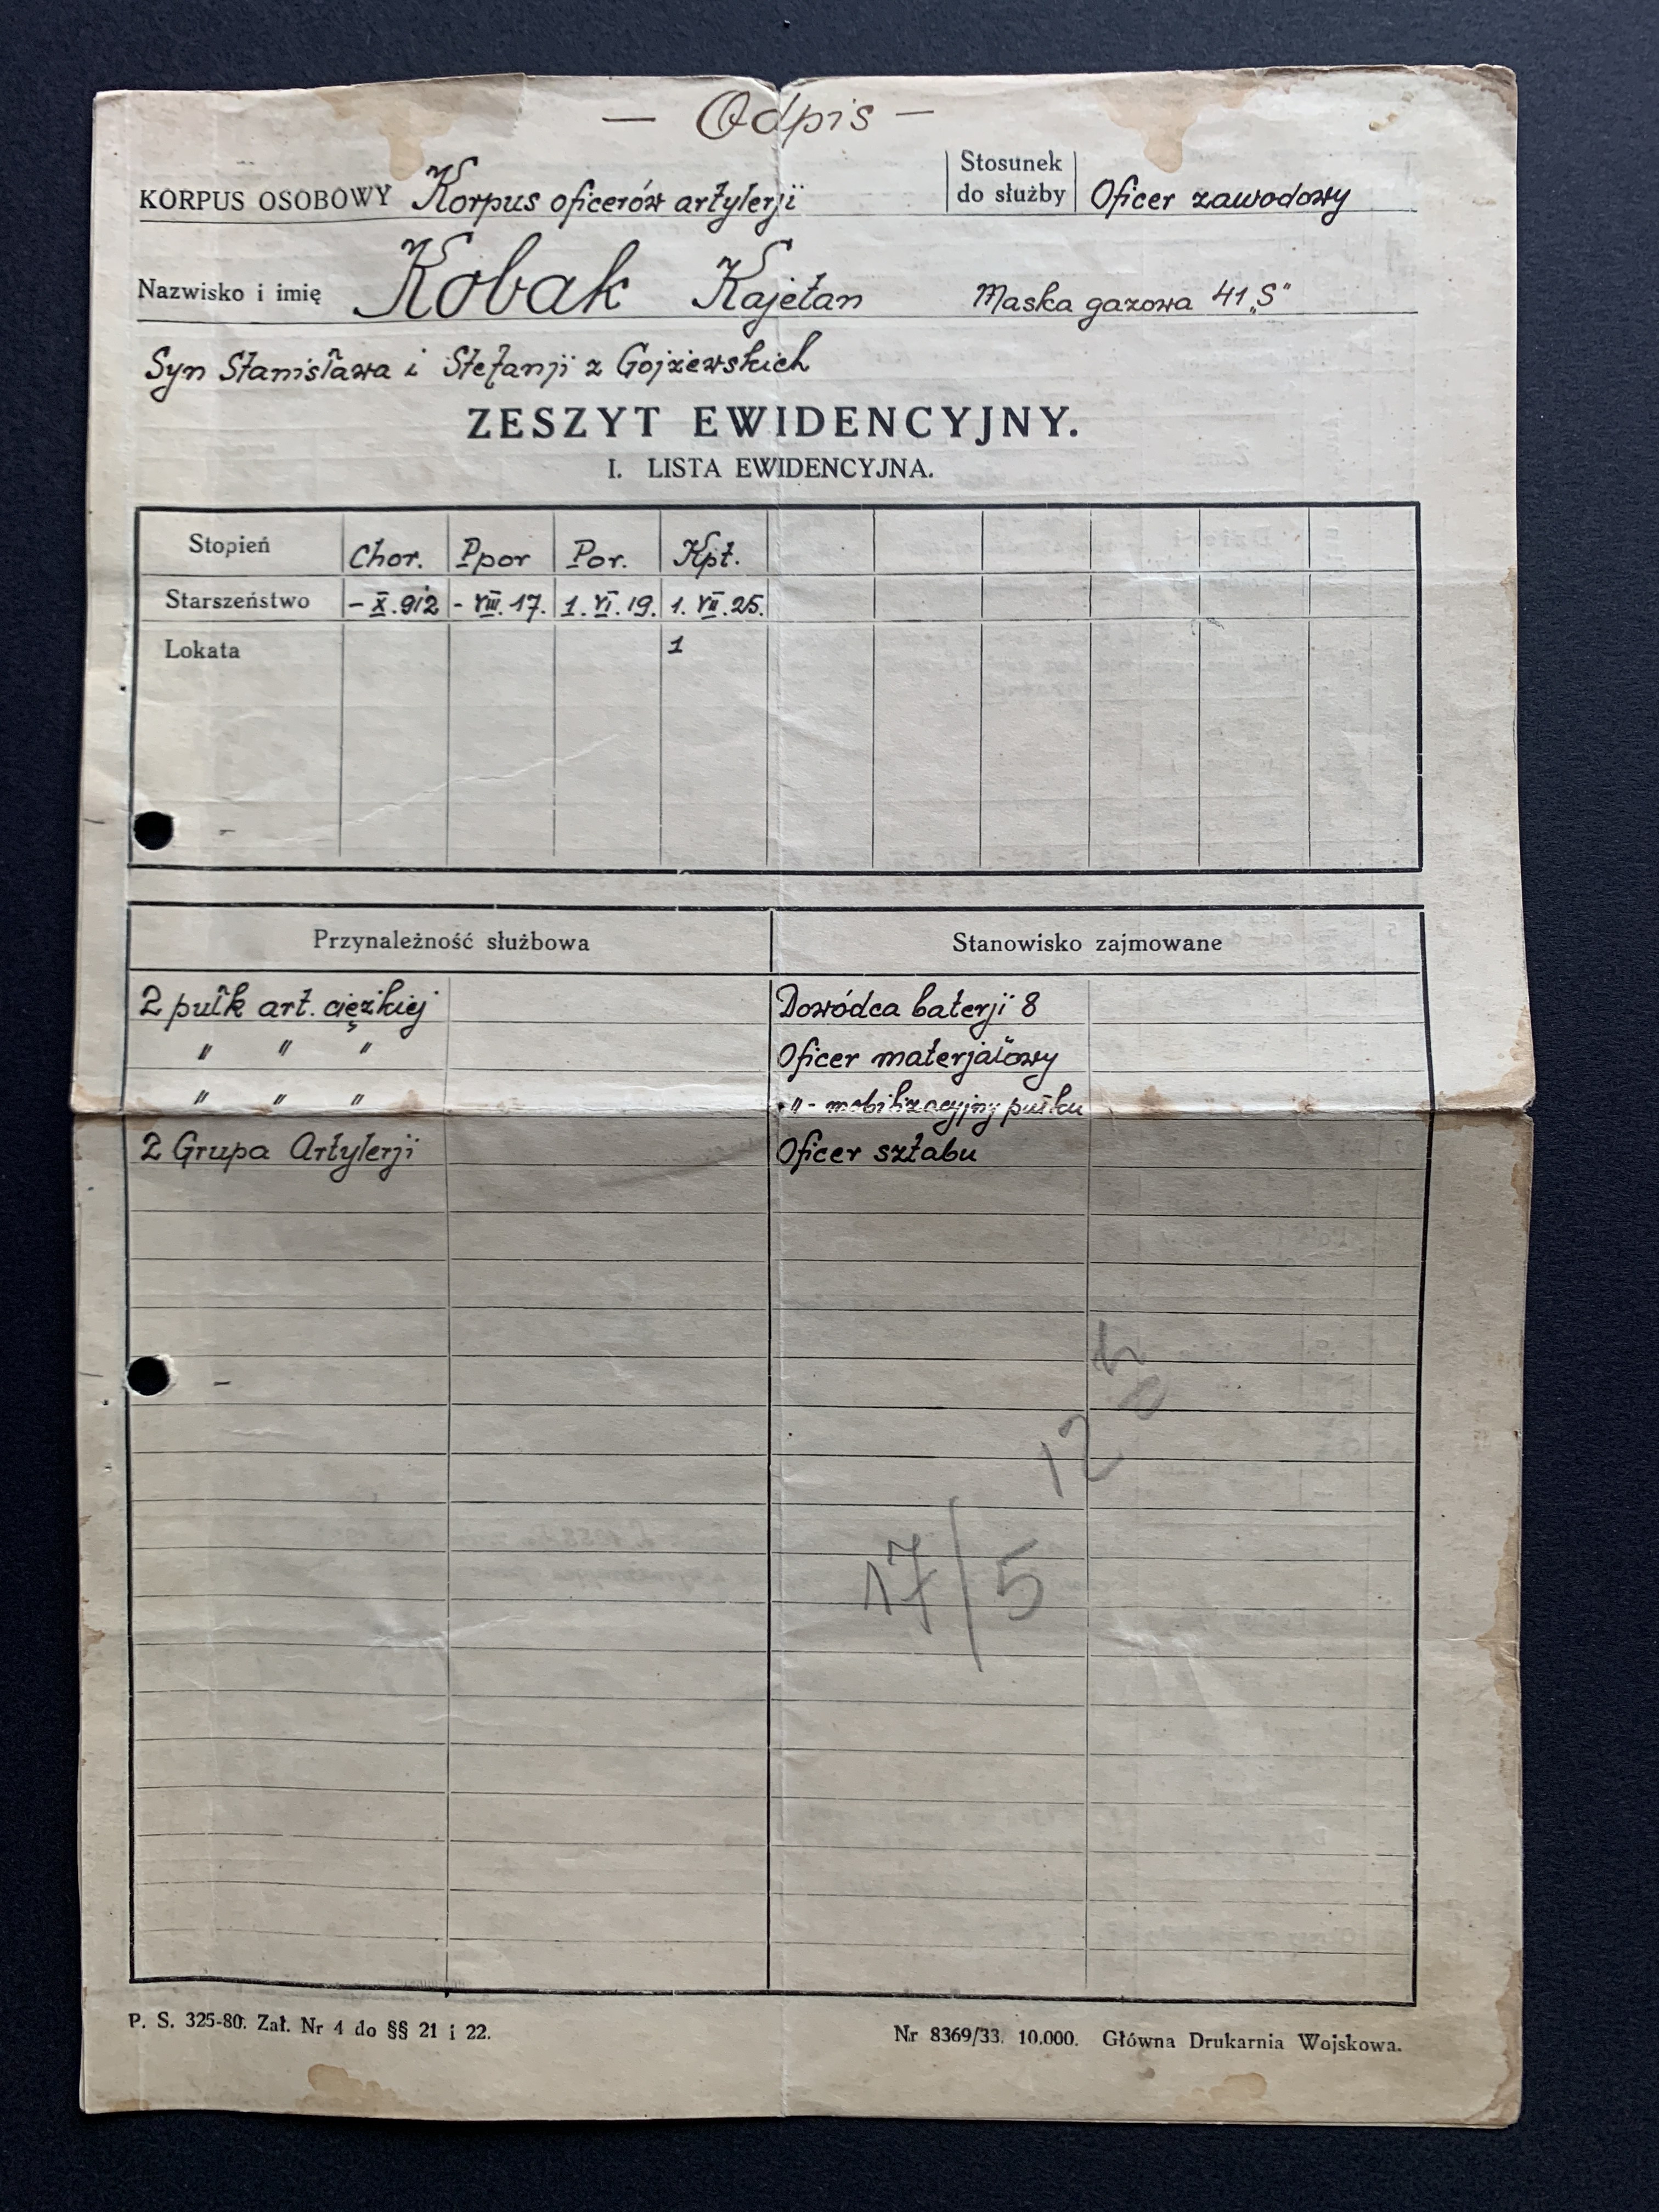 — Odpis —
KORPUS OSOBOWY Korpus oficerów artylerji
Stosunek do służby Oficer zawodowy
Nazwisko i imię Kobak Kajetan Maska gazowa 41 „S"
Syn Stanisława i Stefanji z Gojżewskich
ZESZYT EWIDENCYJNY.
I. LISTA EWIDENCYJNA.
Stopień Chor. Ppor Por. Kpt.
Starszeństwo – X.912 - VIII.17. 1.VI.19. 1.VII.25.
Lokata 1
Przynależność służbowa Stanowisko zajmowane
2 pułk art. ciężkiej Dowódca baterji 8
" " " Oficer materjałowy
" " " -"- mobilizacyjny pułku
2 Grupa Artylerji Oficer sztabu
12
17/5
P. S. 325-80. Zał. Nr 4 do §§ 21 i 22.
Nr 8369/33. 10.000. Główna Drukarnia Wojskowa.